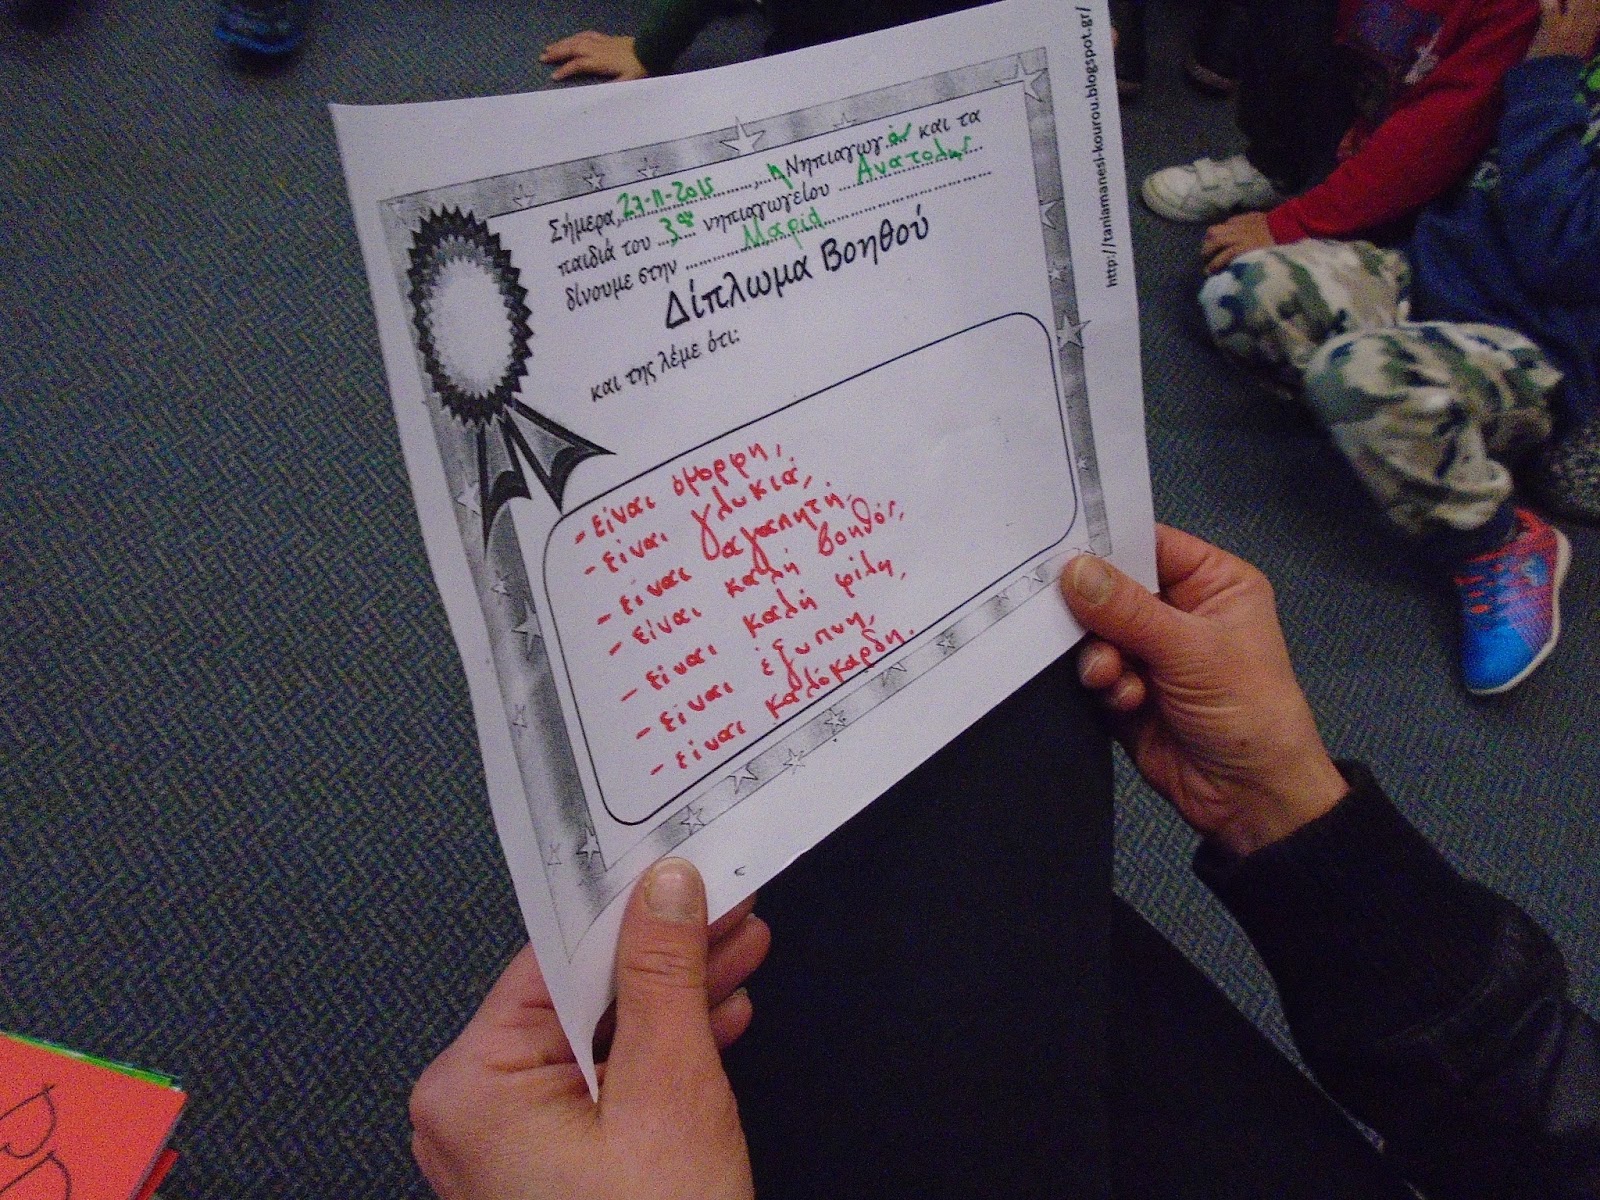 Σήμερα, 27-11-2015, η Νηπιαγωγός και τα
παιδιά του 3ου νηπιαγωγείου Ανατολής
δίνουμε στην Μαρία
Δίπλωμα Βοηθού
και της λέμε ότι:
- είναι όμορφη,
- είναι γλυκιά,
- είναι αγαπητή,
- είναι καλή βοηθός,
- είναι καλή φίλη,
- είναι έξυπνη,
- είναι καλόκαρδη.
http://taniamanesi-kourou.blogspot.gr/